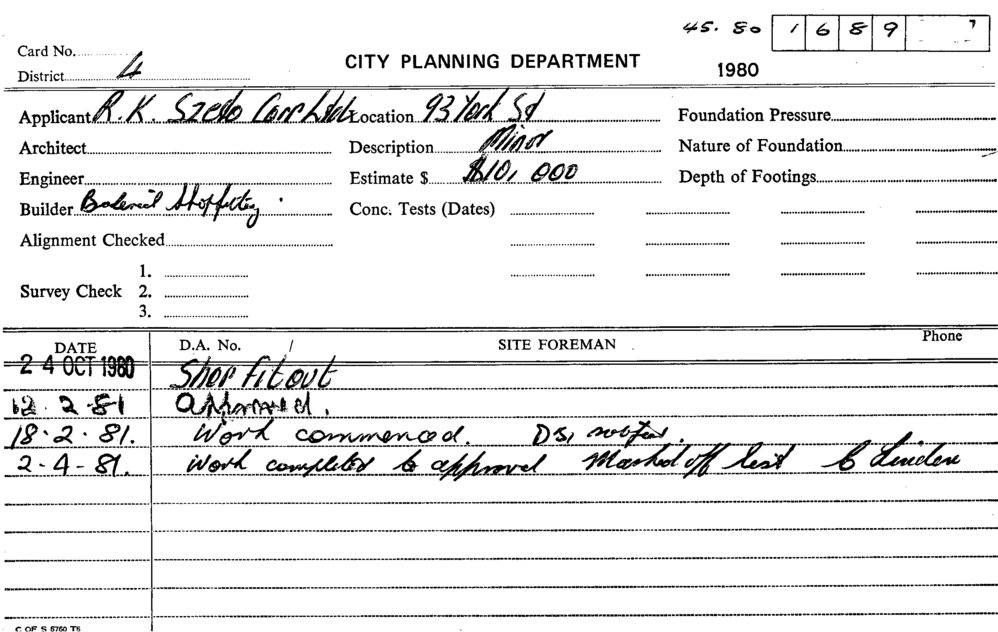 45. 80 1 6 8 9
Card No.
District 4
CITY PLANNING DEPARTMENT
1980
Applicant R. K. Szeto Location 93 York St Foundation Pressure
Architect Description Minor Nature of Foundation
Engineer Estimate $ $10,000 Depth of Footings
Builder Shopfitting Conc. Tests (Dates)
Alignment Checked
1.
Survey Check 2.
3.
DATE D.A. No. / SITE FOREMAN Phone
24 OCT 1980 Shop fitout
12.2.81 approved.
18.2.81. Work commenced.
2-4-81. Work completed to approval Marked off list
C OF S 6760 T6